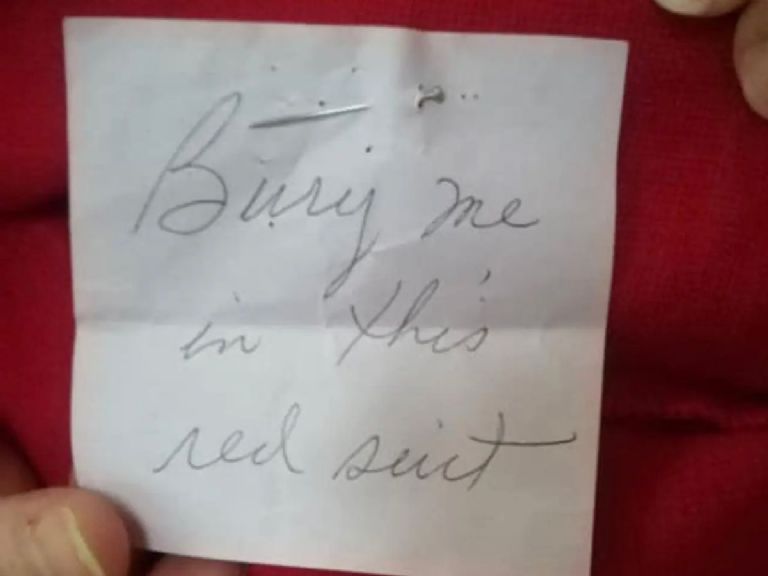 Bury me
in this
red suit